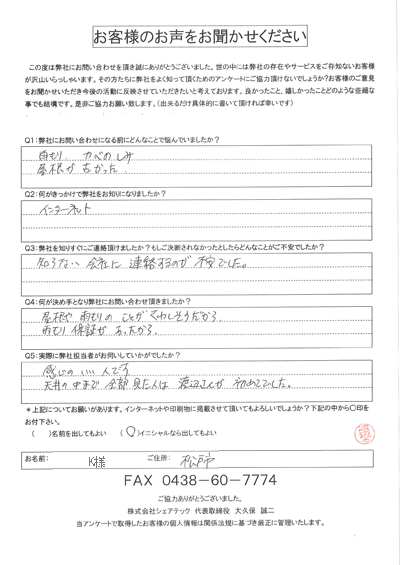 お客様のお声をお聞かせください
この度は弊社にお問い合わせを頂き誠にありがとうございました。世の中には弊社の存在やサービスをご存知ないお客様
が沢山いらっしゃいます。その方たちに弊社をよく知って頂くためのアンケートにご協力頂けないでしょうか?お客様のご意見
をお聞かせいただき今後の活動に反映させていただきたいと考えております。良かったこと、嬉しかったことどのような些細な
事でも結構です。是非ご協力お願い致します。(出来るだけ具体的に書いて頂ければ幸いです)
Q1:弊社にお問い合わせになる前にどんなことで悩んでいましたか?
雨もり カベのしみ
屋根が古かった
Q2:何がきっかけで弊社をお知りになりましたか?
インターネット
Q3:弊社を知りすぐにご連絡頂けましたか?もしご決断されなかったとしたらどんなことがご不安でしたか?
知らない会社に連絡するのが不安でした。
Q4:何が決め手となり弊社にお問い合わせ頂きましたか?
屋根や雨もりのことがくわしそうだから
雨もり保証があったから
Q5:実際に弊社担当者がお伺いしていかがでしたか?
感じのいい人です
天井の中まで全部見た人は渡辺さんが初めてでした。
*上記についてお願いがあります。インターネットや印刷物に掲載させて頂いてもよろしいでしょうか?下記の中から〇印を
お付下さい。
( )名前を出してもよい (〇)イニシャルなら出してもよい
お名前: K様 ご住所: 松戸市
FAX 0438-60-7774
ご協力ありがとうございました。
株式会社シェアテック 代表取締役 大久保 誠二
当アンケートで取得したお客様の個人情報は関係法規に基づき厳正に管理いたします。